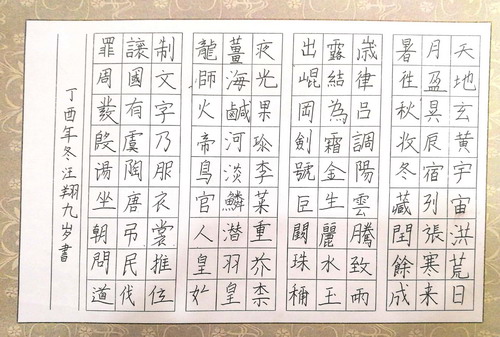 天地玄黄宇宙洪荒日
月盈昃辰宿列張寒来
暑往秋收冬藏閏餘成
歳律呂調陽雲騰致雨
露結為霜金生麗水玉
出崐岡劍號巨闕珠稱
夜光果珍李菜重芥柰
薑海鹹河淡鱗潜羽皇
龍師火帝鳥官人皇始
制文字乃服衣裳推位
讓國有虞陶唐吊民伐
罪周發殷湯坐朝問道
丁酉年冬汪翔九岁書